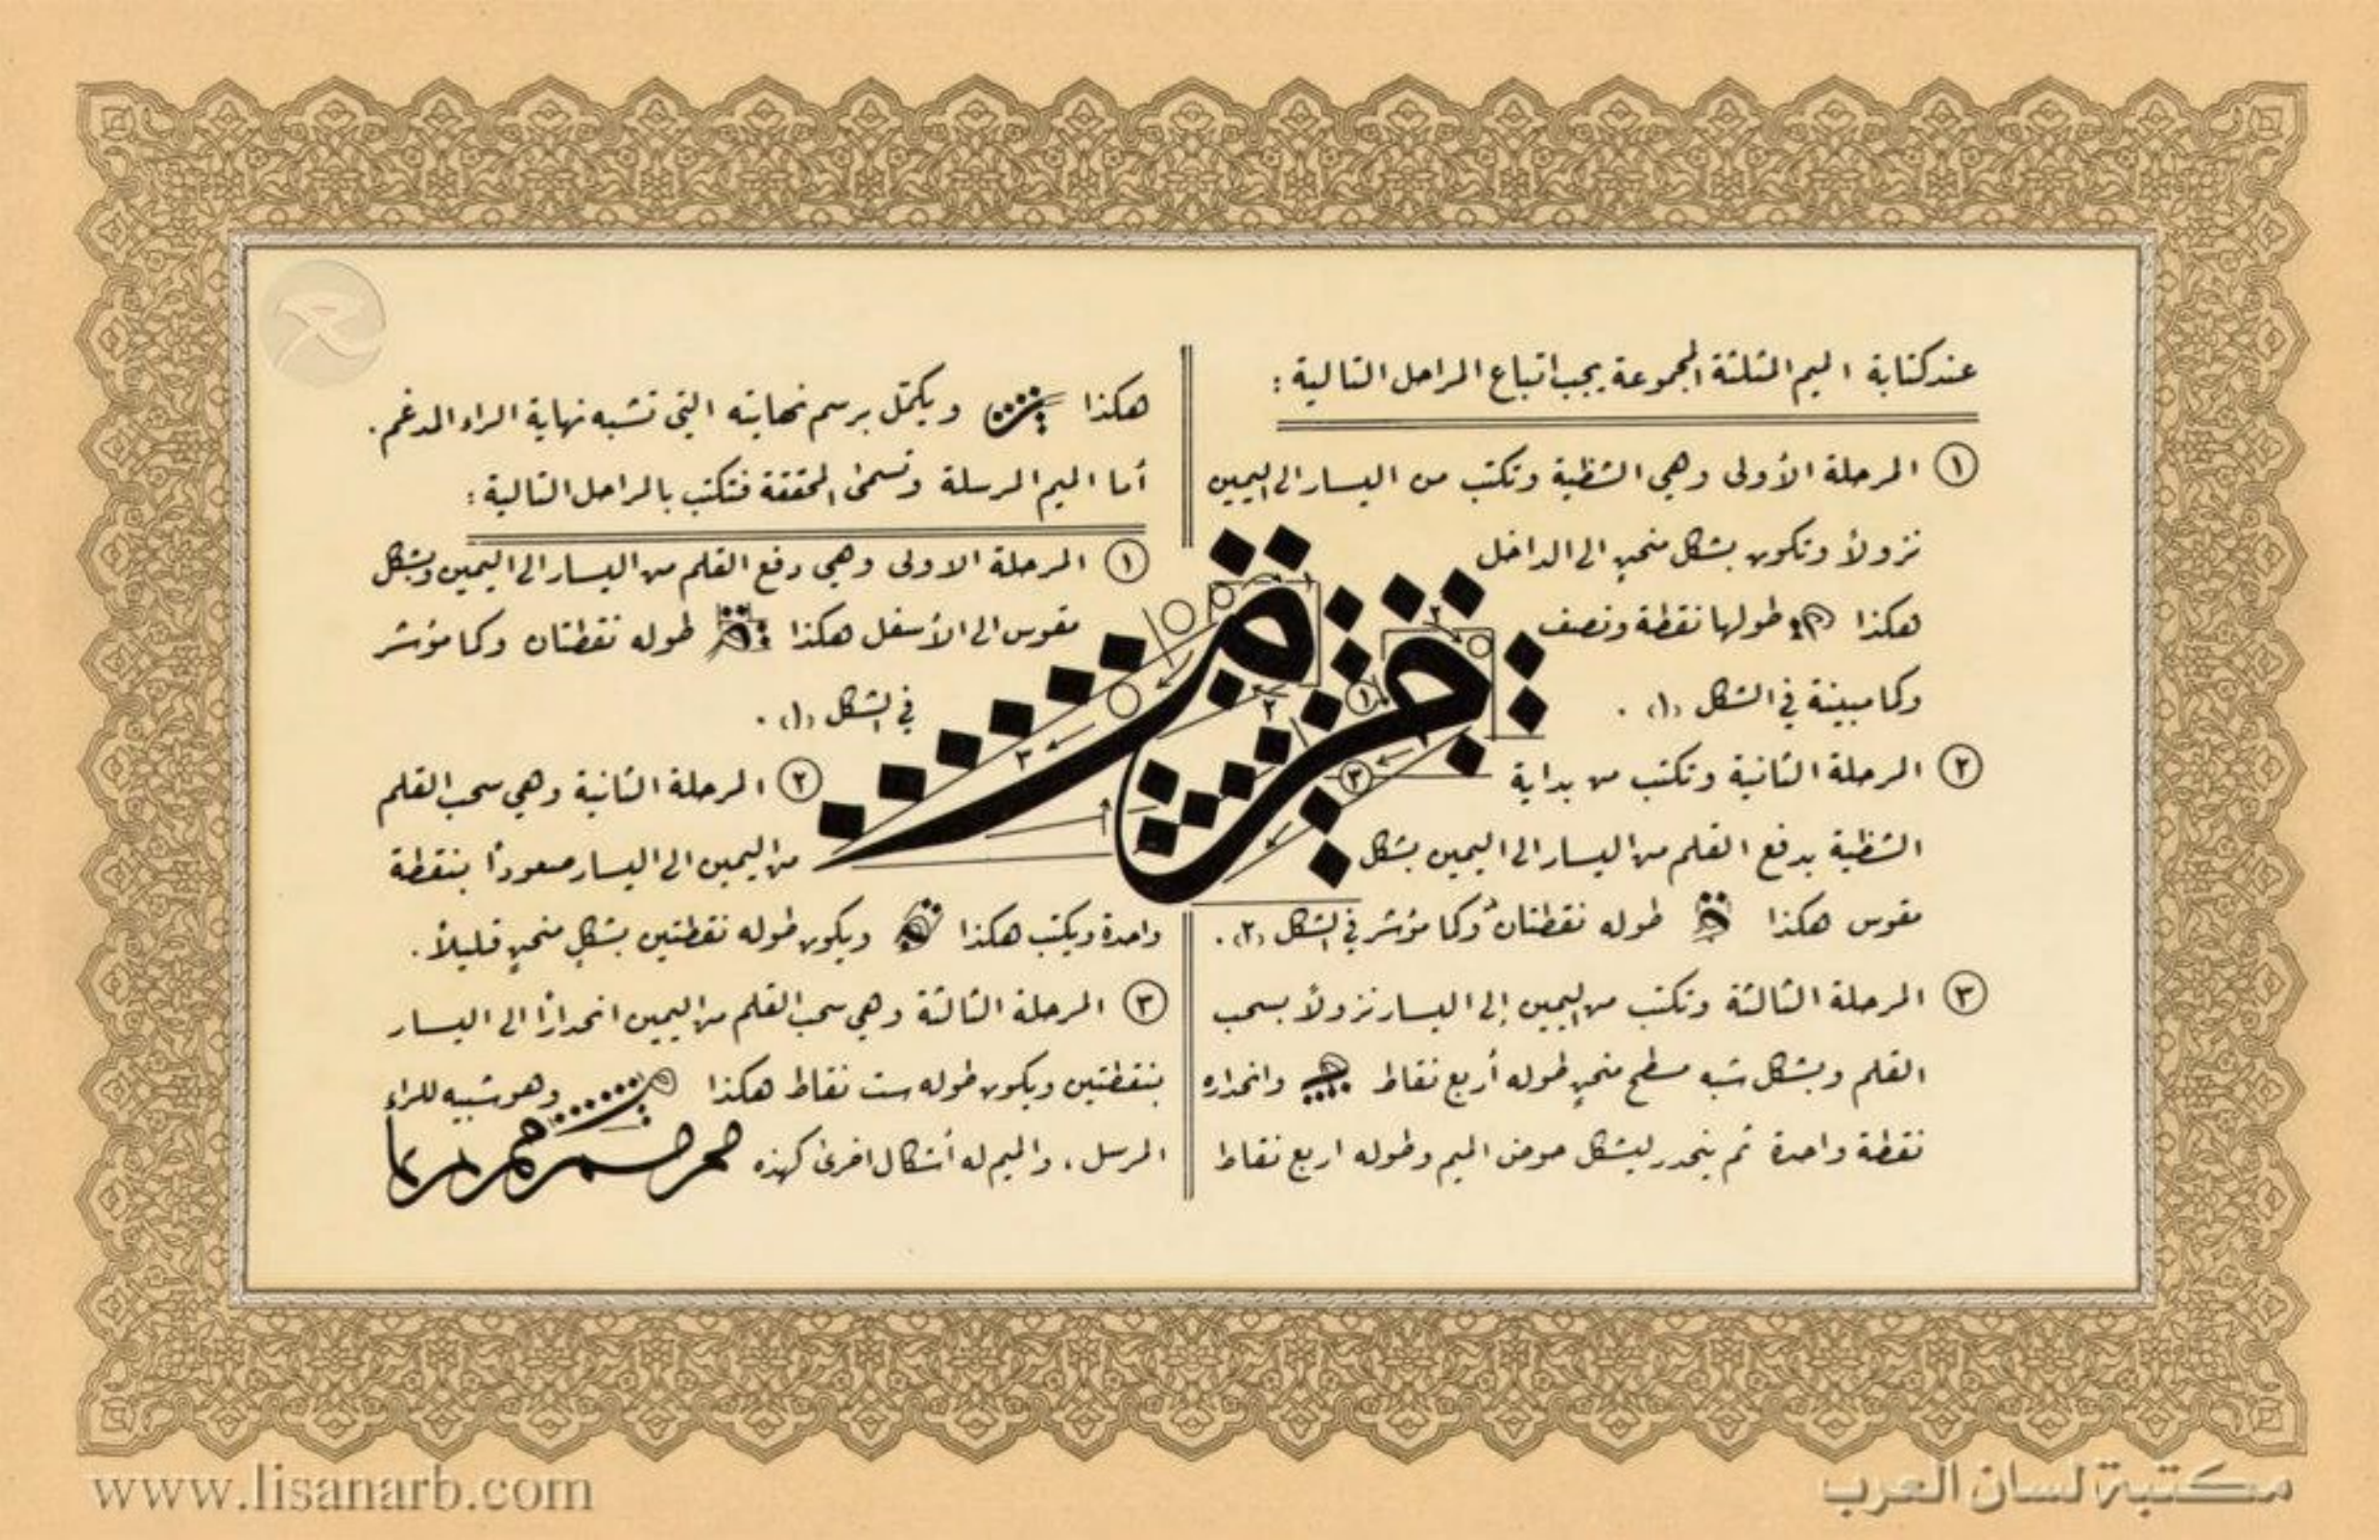 عند كتابة الميم الثلثة المجموعة يجب اتباع المراحل التالية :
١ المرحلة الأولى وهي الشظية وتكتب من اليسار الى اليمين
نزولاً وتكون بشكل منحنٍ الى الداخل
هكذا طولها نقطة ونصف
وكما مبينة في الشكل (١) .
٢ المرحلة الثانية وتكتب من بداية
الشظية بدفع القلم من اليسار الى اليمين بشكل
مقوس هكذا طوله نقطتان وكما مؤشر في الشكل (٢) .
٣ المرحلة الثالثة وتكتب من اليمين إلى اليسار نزولاً بسحب
القلم وبشكل شبه مسطح منحنٍ طوله أربع نقاط وانحداره
نقطة واحدة ثم ينحدر ليشكل حوض الميم وطوله اربع نقاط
هكذا ويكمّل برسم نهايته التي تشبه نهاية الراء المدغم .
أما الميم المرسلة وتسمى المحققة فتكتب بالمراحل التالية :
١ المرحلة الاولى وهي دفع القلم من اليسار الى اليمين وبشكل
مقوس الى الأسفل هكذا طوله نقطتان وكما مؤشر
في الشكل (١) .
٢ المرحلة الثانية وهي سحب القلم
من اليمين الى اليسار صعوداً بنقطة
واحدة ويكتب هكذا ويكون طوله نقطتين بشكلٍ منحنٍ قليلاً .
٣ المرحلة الثالثة وهي سحب القلم من اليمين انحداراً الى اليسار
بنقطتين ويكون طوله ست نقاط هكذا وهو شبيه للراء
المرسل ، والميم له أشكال اخرى كهذه
١
٢
٣
١
٢
٣
www.lisanarb.com
مكتبة لسان العرب